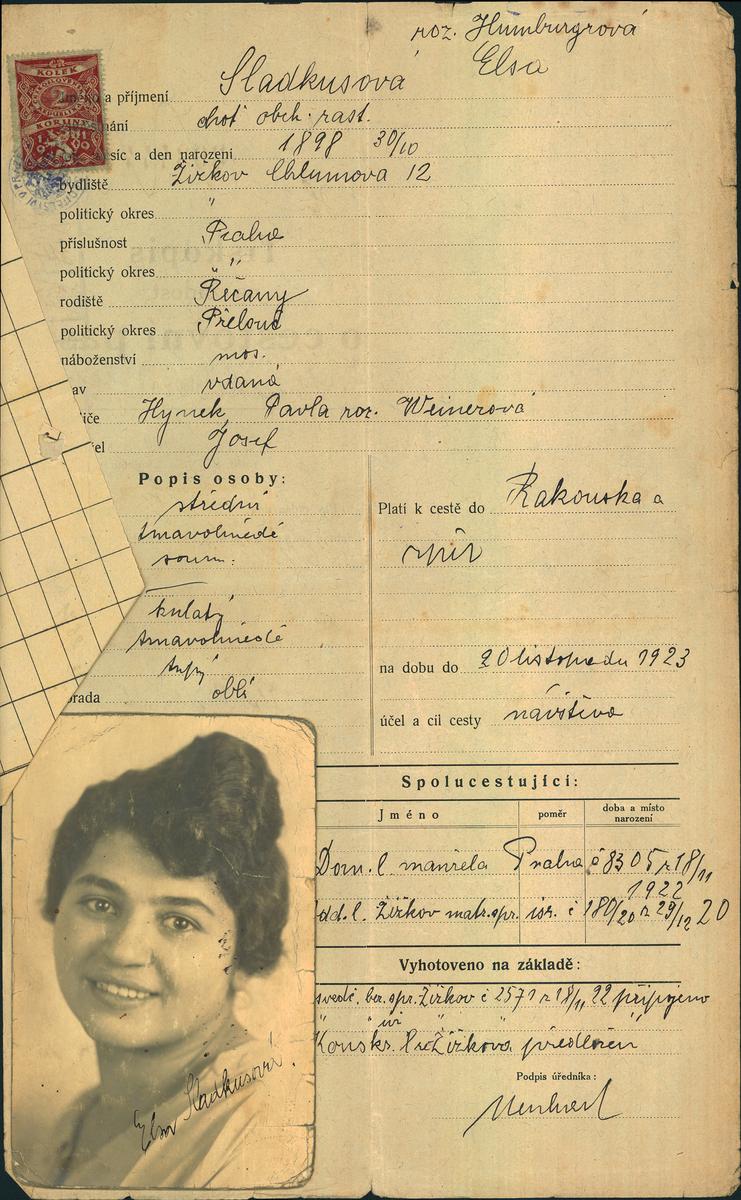 roz. Humburgrová
Sladkusová Elsa
KOLEK
KORUNY
a příjmení
choť obch. rast.
síc a den narození 1898 30/10
bydliště Žižkov Chlumova 12
politický okres "
příslušnost Praha
politický okres "
rodiště Řečany
politický okres Přelouč
náboženství mos.
av vdaná
iče Hynek, Pavla roz. Weinerová
el Josef
Popis osoby:
střední
tmavohnědé
soum.
kulatý
tmavohnědé
tupý
brada oblá
Platí k cestě do Rakouska a
zpět
na dobu do 20 listopadu 1923
účel a cíl cesty návštěva
Spolucestující:
Jméno poměr doba a místo narození
Dom. l. manžela Praha č 8305 z 18/11
1922
dd. l. Žižkov matr. spr. isr. č 180/20 z 29/12 20
Vyhotoveno na základě:
svědč. ber. spr. Žižkov č 2571 z 18/11 22 připojeno
Konskr. Žižkova předložen
Podpis úředníka:
Elsa Sladkusová.